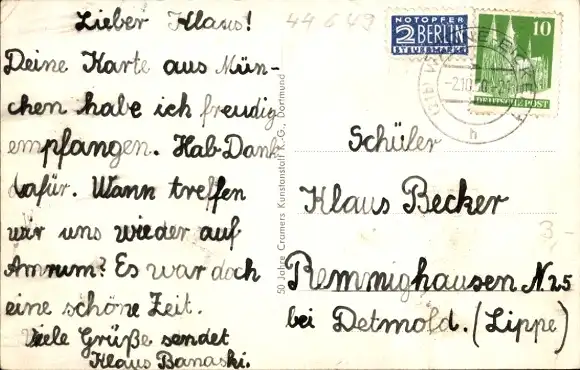 Lieber Klaus!
Deine Karte aus Mün-
chen habe ich freudig
empfangen. Hab Dank
dafür. Wann treffen
wir uns wieder auf
Amrum? Es war doch
eine schöne Zeit.
Viele Grüße sendet
Klaus Banaski.
44649
50 Jahre Cramers Kunstanstalt K.-G., Dortmund
NOTOPFER
2 BERLIN
STEUERMARKE
10
DEUTSCHE POST
WANNE-EICKEL
-2.10.50
h
Schüler
Klaus Becker
Remmighausen N. 25
bei Detmold. (Lippe)
3-